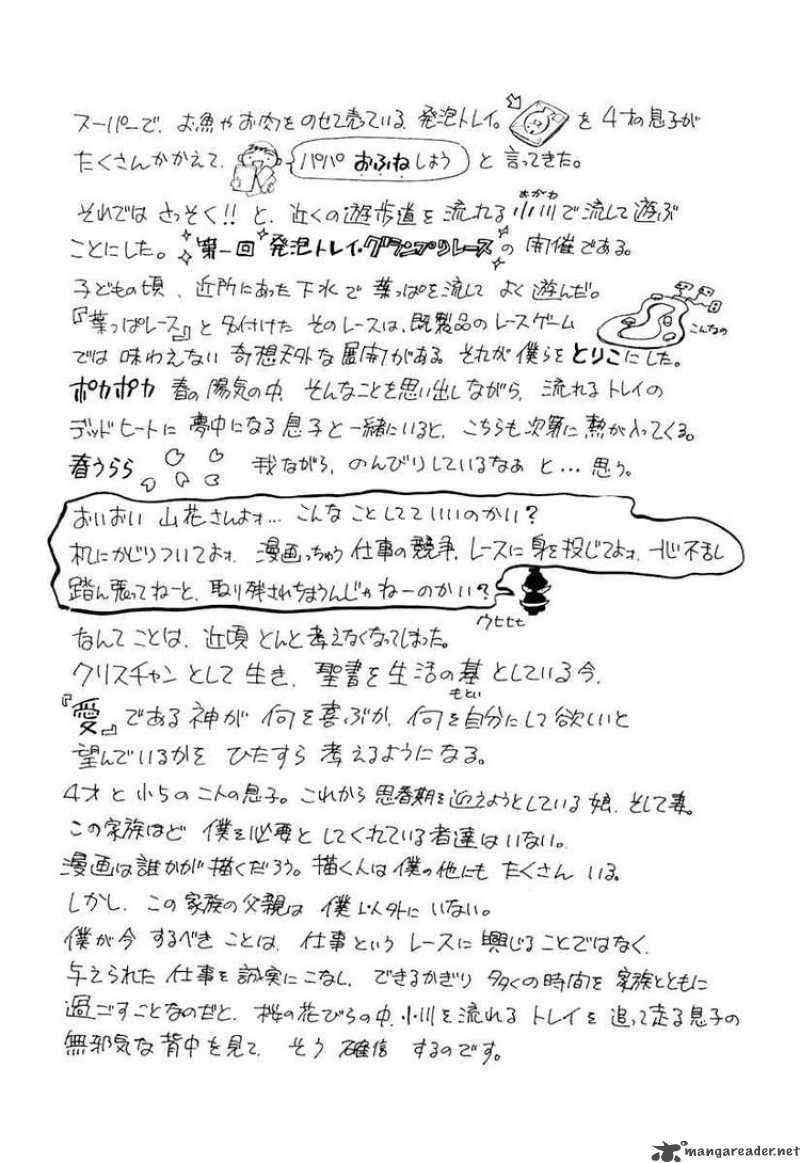 スーパーで、お魚やお肉をのせて売っている、発泡トレイ。を4才の息子が
たくさんかかえて、パパ おふねしよう と言ってきた。
それでは さっそく!! と、近くの遊歩道を流れる小川で流して遊ぶ
おがわ
ことにした。第一回 発泡トレイ・グランプリレース の開催である。
子どもの頃、近所にあった下水で 葉っぱを流して よく遊んだ。
『葉っぱレース』と名付けた そのレースは、既製品のレースゲーム
こんなの
では 味わえない 奇想天外な展開がある。それが僕らをとりこにした。
ポカポカ 春の陽気の中、そんなことを思い出しながら、流れるトレイの
デッドヒートに 夢中になる息子と一緒にいると、こちらも次第に熱が入ってくる。
春うらら 我ながら、のんびりしているなぁ と…思う。
おいおい 山花さんよォ… こんな ことしてていいのかい?
机にかじりついてよォ、漫画っちゅう仕事の競争、レースに身を投じてよォ、一心不乱
踏ん張ってねーと、取り残されちまうんじゃねーのかい?
ウヒヒヒ
なんて ことは、近頃 とんと考えなくなってしまった。
クリスチャンとして生き、聖書を生活の基としている今、
もとい
『愛』である神が 何を喜ぶか、何を自分にして欲しいと
望んでいるかを ひたすら 考えるようになる。
4才と小5の二人の息子。これから思春期を迎えようとしている娘、そして妻。
この家族ほど 僕を必要と してくれている者達はいない。
漫画は誰かが描くだろう。描く人は僕の他にも たくさん いる。
しかし、この家族の父親は 僕以外にいない。
僕が今 するべき ことは、仕事という レースに興じることではなく、
与えられた 仕事を誠実にこなし、できるかぎり 多くの時間を 家族とともに
過ごすことなのだと、桜の花びらの中、小川を流れる トレイを 追って走る息子の
無邪気な背中を見て、そう 確信 するのです。
mangareader.net